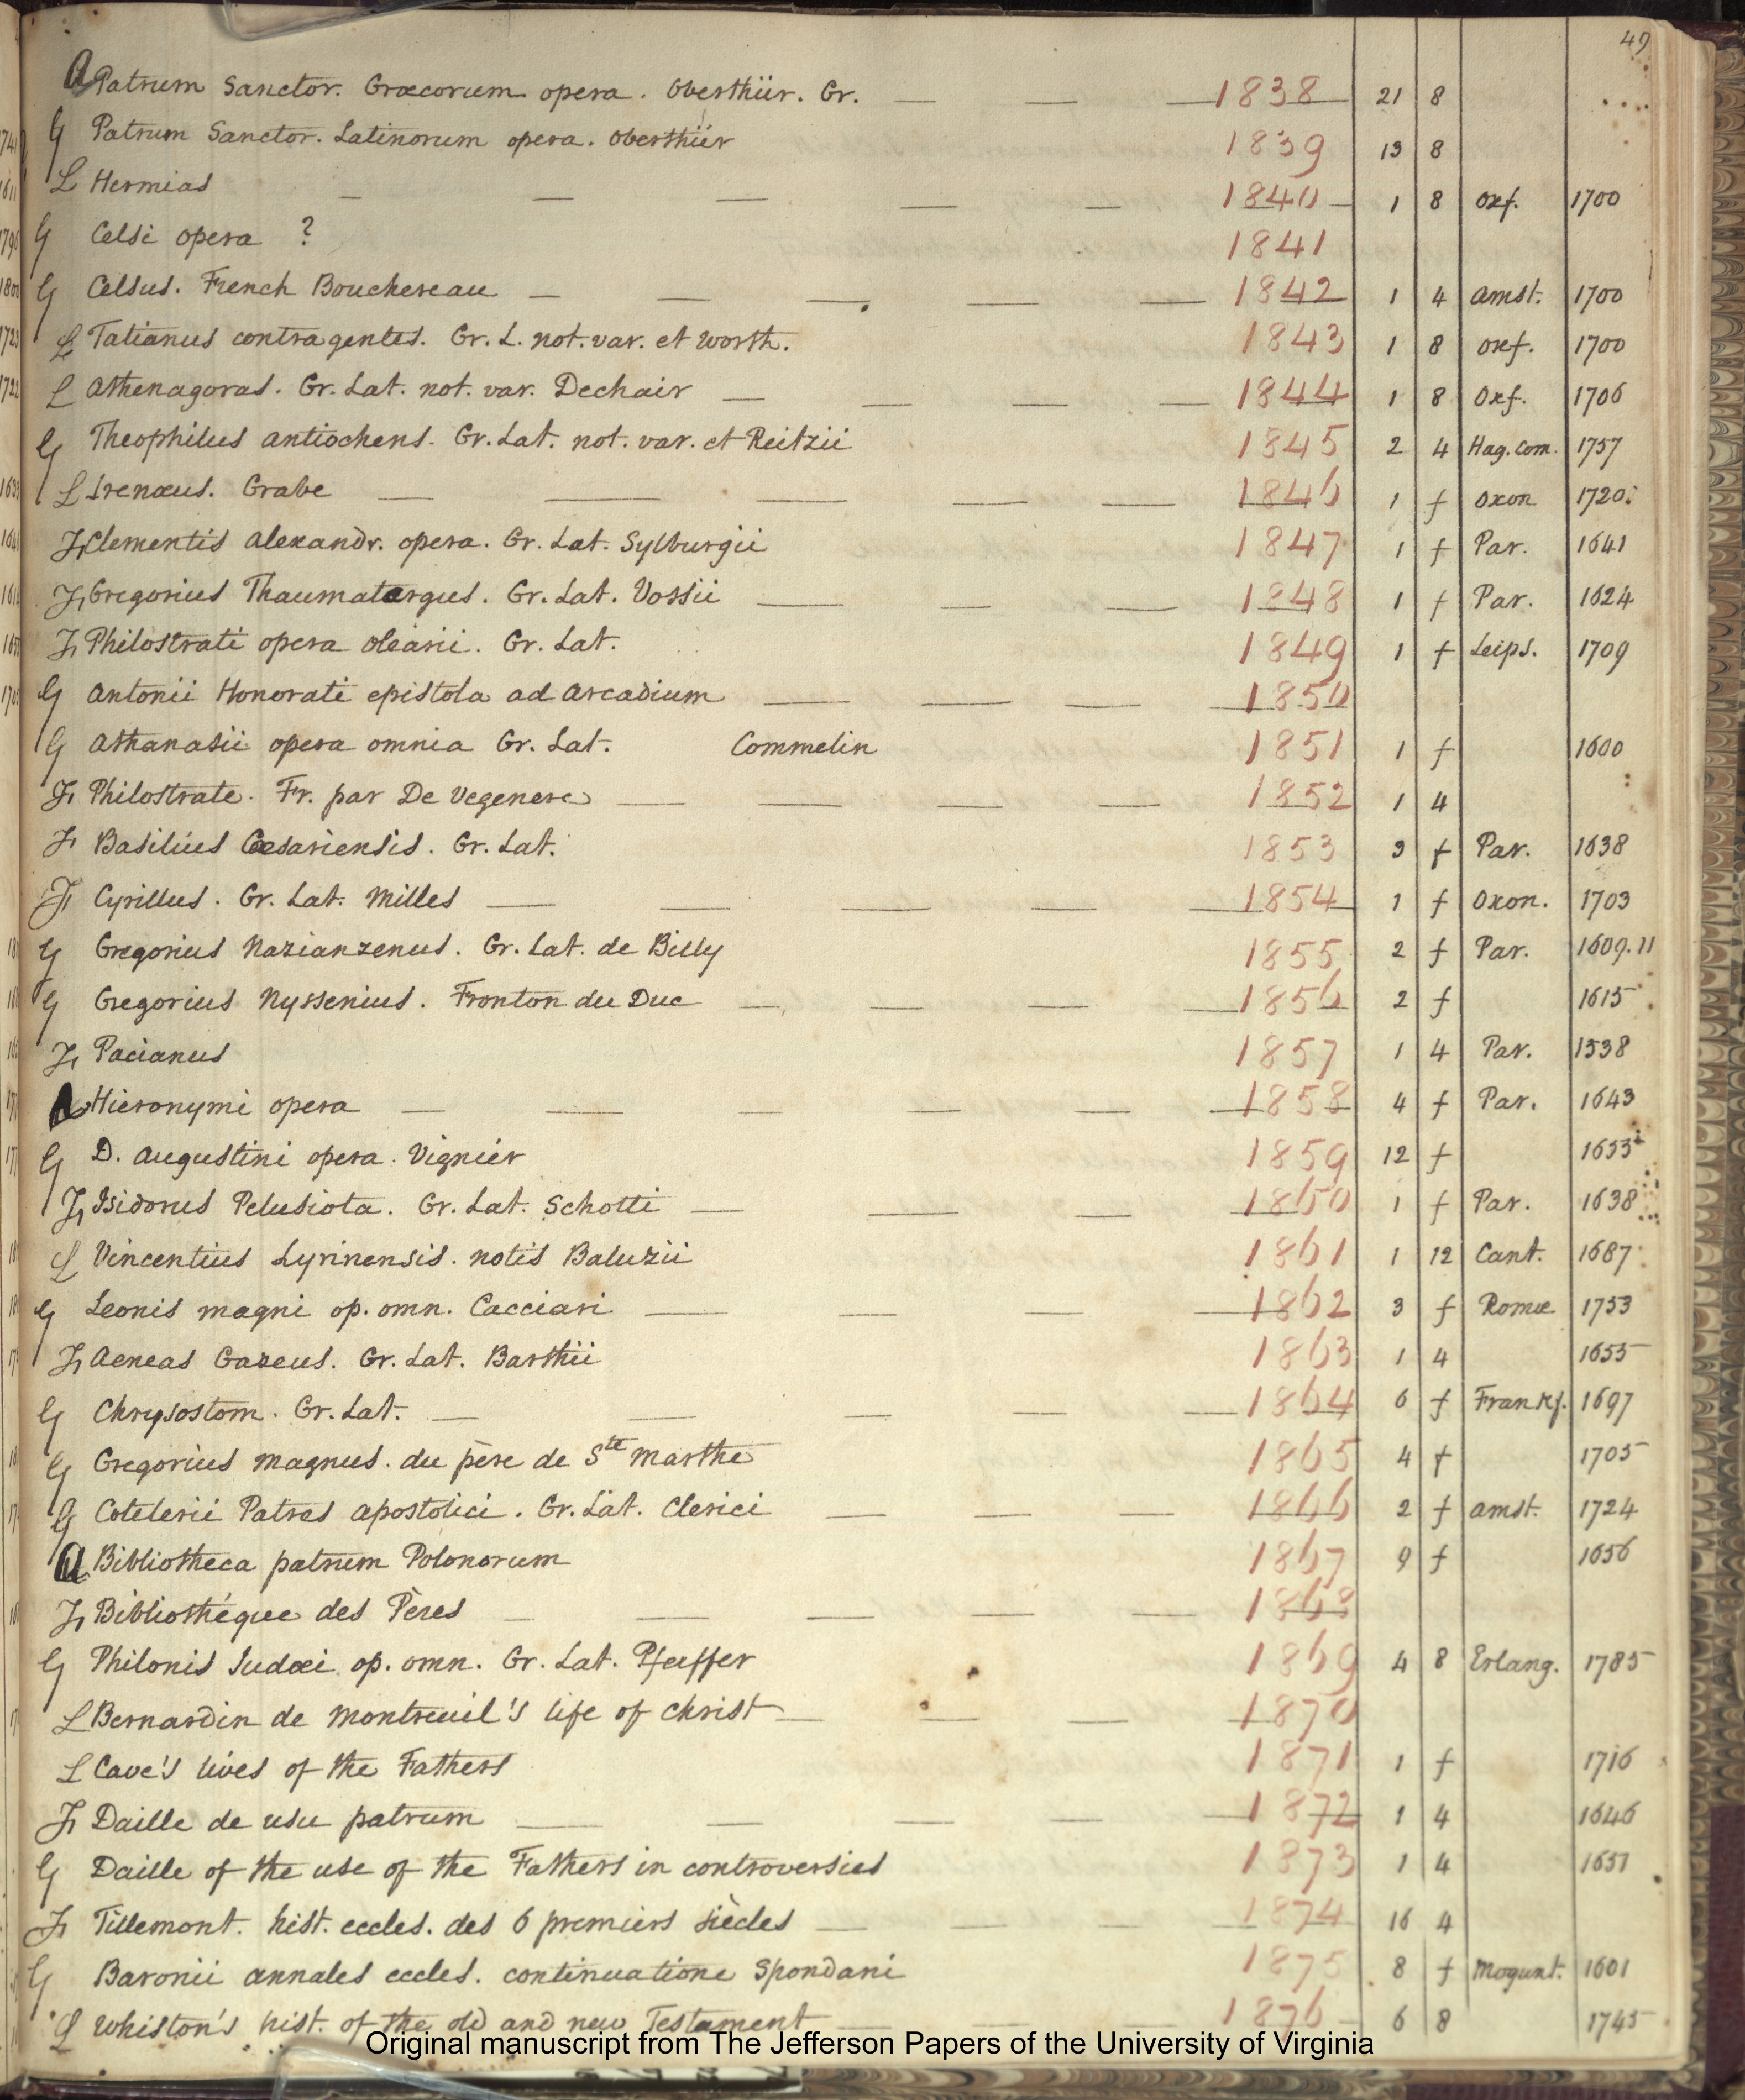 49
A Patrum Sanctor. Græcorum opera. Oberthür. Gr. 1838 21 8
G Patrum Sanctor. Latinorum opera. Oberthür 1839 13 8
L Hermias 1840 1 8 Oxf. 1700
G Celsi opera ? 1841
G Celsus. French Bouchereau 1842 1 4 Amst. 1700
L Tatianus contra gentes. Gr. L. not. var. et Worth. 1843 1 8 Oxf. 1700
L Athenagoras. Gr. Lat. not. var. Dechair 1844 1 8 Oxf. 1706
G Theophilus Antiochens. Gr. Lat. not. var. et Reitzii 1845 2 4 Hag. Com. 1757
L Irenæus. Grabe 1846 1 f Oxon 1720.
Fr Clementis Alexandr. opera. Gr. Lat. Sylburgii 1847 1 f Par. 1641
Fr Gregorius Thaumatargus. Gr. Lat. Vossii 1848 1 f Par. 1624
Fr Philostrati opera Olearii. Gr. Lat. 1849 1 f Leips. 1709
G Antonii Honorati epistola ad Arcadium 1850
G Athanasii opera omnia Gr. Lat. Commelin 1851 1 f 1600
Fr Philostrate. Fr. par De Vegenere 1852 1 4
Fr Basilius Cæsariensis. Gr. Lat. 1853 3 f Par. 1638
Fr Cyrillus. Gr. Lat. Milles 1854 1 f Oxon. 1703
G Gregorius Nazianzenus. Gr. Lat. de Billy 1855 2 f Par. 1609.11
G Gregorius Nyssenius. Fronton du Duc 1856 2 f 1615
Fr Pacianus 1857 1 4 Par. 1538
A Hieronymi opera 1858 4 f Par. 1643
G D. Augustini opera. Vignier 1859 12 f 1653
Fr Isidorus Pelusiota. Gr. Lat. Schotti 1860 1 f Par. 1638
L Vincentius Lyrinensis. notis Baluzii 1861 1 12 Cant. 1687
G Leonis magni op. omn. Cacciari 1862 3 f Romæ 1753
Fr Aeneas Gazeus. Gr. Lat. Barthii 1863 1 4 1655
G Chrysostom. Gr. Lat. 1864 6 f Frankf. 1697
G Gregorius Magnus. du père de Ste Marthe 1865 4 f 1705
G Cotelerii Patres apostolici. Gr. Lat. Clerici 1866 2 f Amst. 1724
A Bibliotheca patrum Polonorum 1867 9 f 1656
Fr Bibliothéque des Pères 1868
G Philonis Judæi op. omn. Gr. Lat. Pfeiffer 1869 4 8 Erlang. 1785
L Bernardin de Montreuil's life of Christ 1870
L Cave's lives of the Fathers 1871 1 f 1716
Fr Daille de usu patrum 1872 1 4 1646
G Daille of the use of the Fathers in controversies 1873 1 4 1651
Fr Tillemont. hist. eccles. des 6 premiers siècles 1874 16 4
G Baronii annales eccles. continuatione Spondani 1875 8 f Mogunt. 1601
L Whiston's hist. of the old and new Testament 1876 6 8 1745
Original manuscript from The Jefferson Papers of the University of Virginia